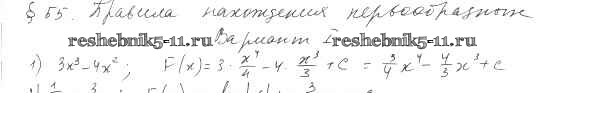 § 55. Правила нахождения первообразной
reshebnik5-11.ru Вариант I reshebnik5-11.ru
1) 3x³-4x²; F(x)=3·x⁴/4-4·x³/3+C = 3/4x⁴-4/3x³+C